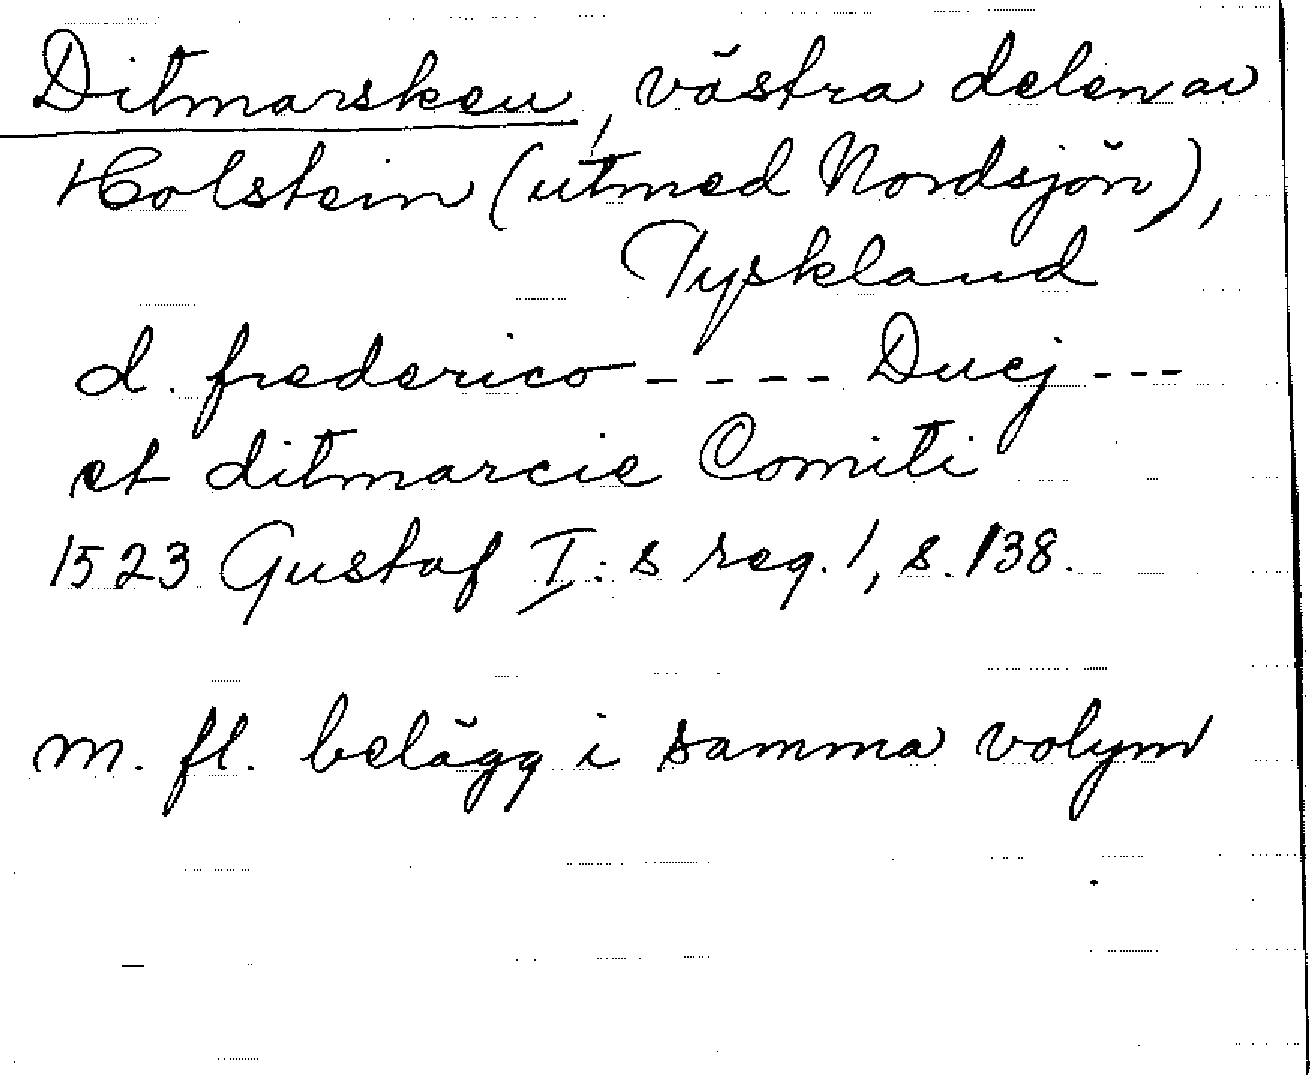 Ditmarsken, västra delen av
Holstein (utmed Nordsjön),
Tyskland
d. frederico ---- Ducj ---
et ditmarcie Comiti
1523 Gustaf I:s reg. 1, s. 138.
m. fl. belägg i samma volym